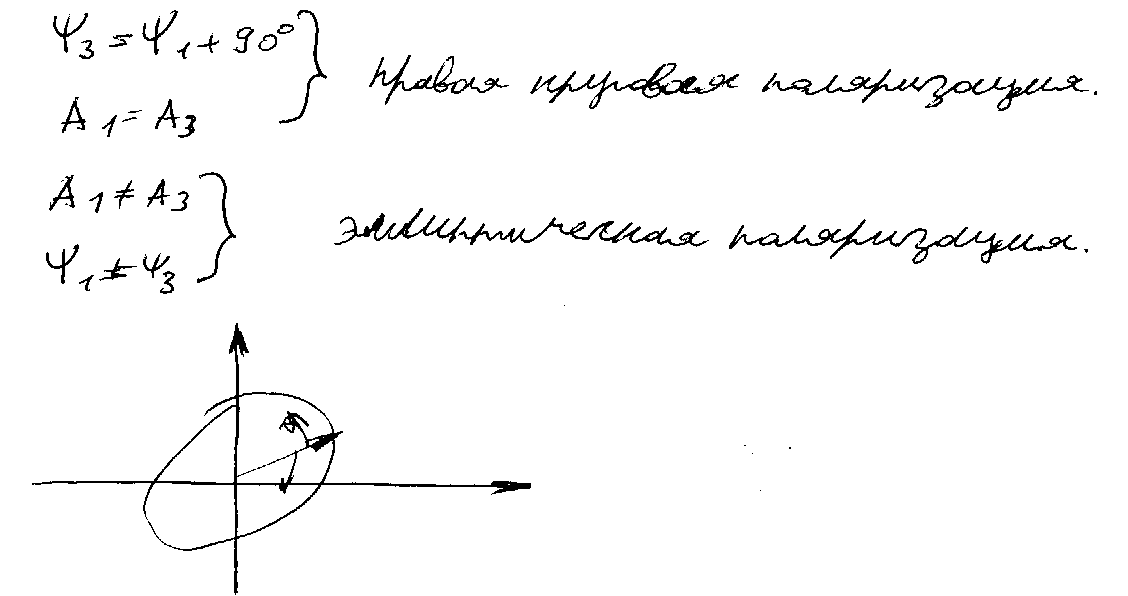 Ψ₃ = Ψ₁ + 90°
A₁ = A₃
} правая круговая поляризация.
A₁ ≠ A₃
Ψ₁ ≠ Ψ₃
} эллиптическая поляризация.